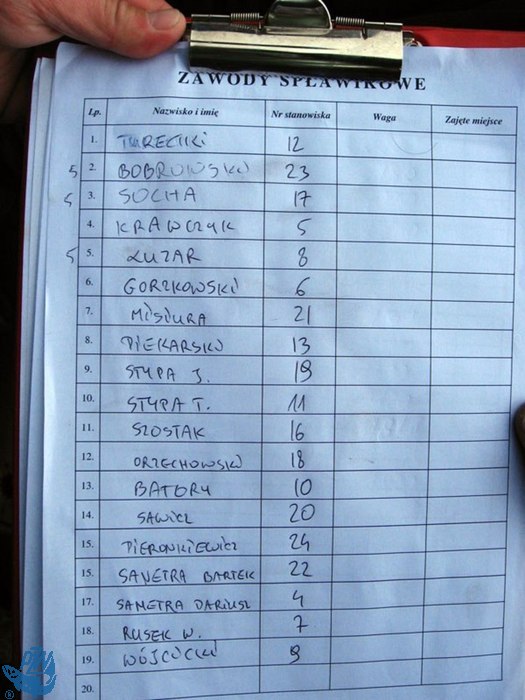 ZAWODY SPŁAWIKOWE
Lp. Nazwisko i imię Nr stanowiska Waga Zajęte miejsce
1. TURECKI 12
5 2. BOBROWSKI 23
5 3. SOCHA 17
4. KRAWCZYK 5
5 5. ŁUZAR 8
6. GORZKOWSKI 6
7. MISIURA 21
8. PIEKARSKI 13
9. STYPA J. 19
10. STYPA T. 11
11. SZOSTAK 16
12. ORZECHOWSKI 18
13. BATORY 10
14. SAWICZ 20
15. PIERONKIEWICZ 24
15. SAWETRA BARTEK 22
17. SAMETRA DARIUSZ 4
18. RUSEK W. 7
19. WÓJCICKI 9
20.
®